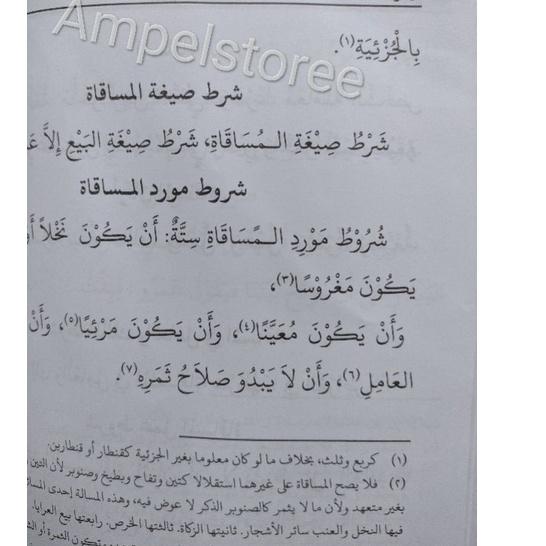 Ampelstoree
بِالْجُزْئِيَةِ(١).
شرط صيغة المساقاة
شَرْطُ صِيْغَةِ الـمُسَاقَاةِ، شَرْطُ صِيْغَةِ البَيْعِ إِلاَّ
شروط مورد المساقاة
شُرُوْطُ مَوْرِدِ الـمُسَاقَاةِ سِتَّةٌ: أَنْ يَكُوْنَ نَخْلاً
يَكُوْنَ مَغْرُوْسًا(٣)،
وَأَنْ يَكُوْنَ مُعَيَّنًا(٤)، وَأَنْ يَكُوْنَ مَرْئِيًا(٥)، وَأَنْ
العَامِلِ(٦)، وَأَنْ لاَ يَبْدُوَ صَلاَحُ ثَمَرِهِ(٧).
(١) كربع وثلث، بخلاف ما لو كان معلوما بغير الجزئية كقنطار أو قنطارين.
(٢) فلا يصح المساقاة على غيرهما استقلالا كتين وتفاح وبطيخ وصنوبر لأن التين
بغير متعهد ولأن ما لا يثمر كالصنوبر الذكر لا عوض فيه، وهذه المسالة إحدى
فيها النخل والعنب سائر الأشجار. ثانيتها الزكاة. ثالثتها الخرص. رابعتها بيع العرايا.